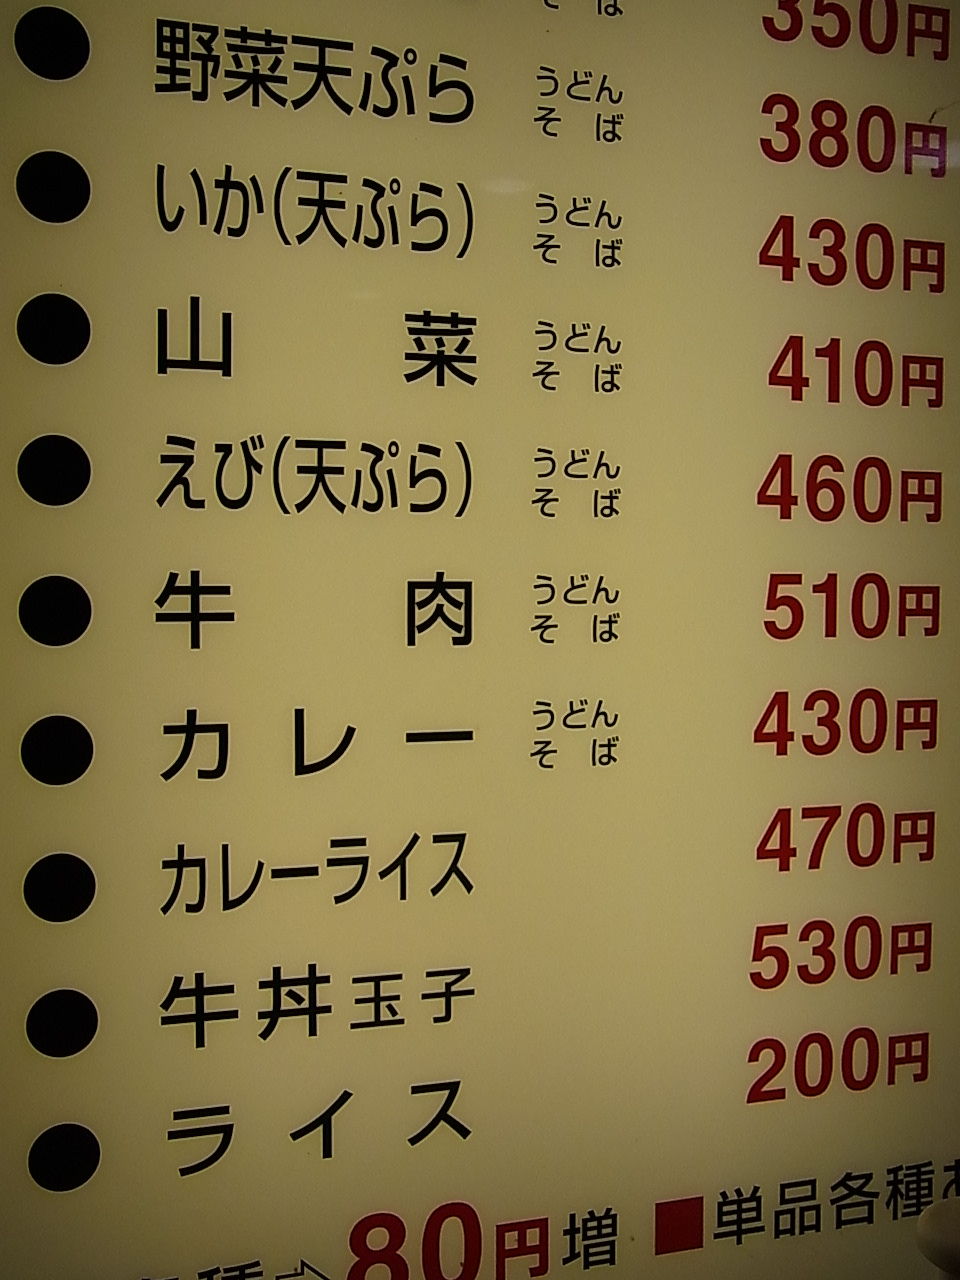 そば 350円
● 野菜天ぷら うどん そば 380円
● いか(天ぷら) うどん そば 430円
● 山菜 うどん そば 410円
● えび(天ぷら) うどん そば 460円
● 牛肉 うどん そば 510円
● カレー うどん そば 430円
● カレーライス 470円
● 牛丼玉子 530円
● ライス 200円
種⇨80円増 ■単品各種